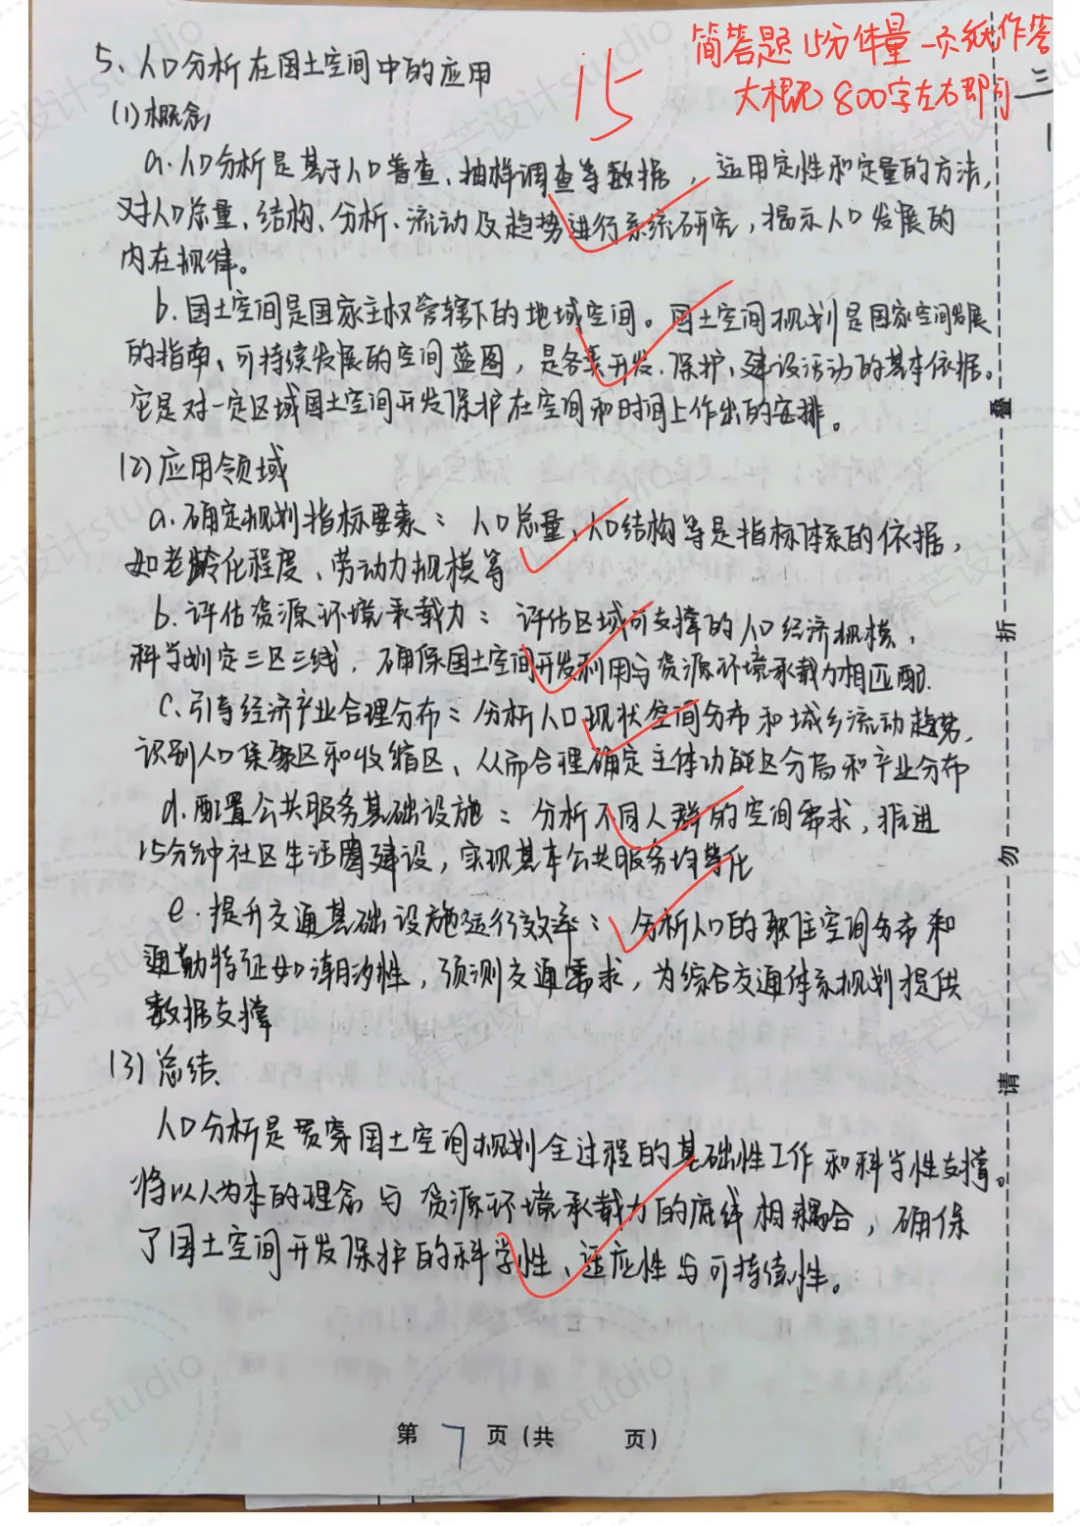 简答题15分体量 一页纸作答
大概 800字左右即可
15
三
1
5、人口分析在国土空间中的应用
(1)概念
a.人口分析是基于人口普查、抽样调查等数据，运用定性和定量的方法，
对人口总量、结构、分析、流动及趋势进行系统研究，揭示人口发展的
内在规律。
b.国土空间是国家主权管辖下的地域空间。国土空间规划是国家空间发展
的指南、可持续发展的空间蓝图，是各类开发、保护、建设活动的基本依据。
它是对一定区域国土空间开发保护在空间和时间上作出的安排。
(2)应用领域
a.确定规划指标要素：人口总量、人口结构等是指标体系的依据，
如老龄化程度、劳动力规模等
b.评估资源环境承载力：评估区域可支撑的人口经济规模，
科学划定三区三线，确保国土空间开发利用与资源环境承载力相匹配.
C、引导经济产业合理分布：分析人口现状空间分布和城乡流动趋势，
识别人口集聚区和收缩区、从而合理确定主体功能区分局和产业分布
d.配置公共服务基础设施：分析不同人群的空间需求，推进
15分钟社区生活圈建设，实现基本公共服务均等化
e.提升交通基础设施运行效率：分析人口的职住空间分布和
通勤特征如潮汐性，预测交通需求，为综合交通体系规划提供
数据支撑
(3)总结
人口分析是贯穿国土空间规划全过程的基础性工作和科学性支撑。
将以人为本的理念与资源环境承载力的底线相耦合，确保
了国土空间开发保护的科学性、适应性与可持续性。
第 7 页(共 页)
叠
折
勿
请
锋芒设计studio